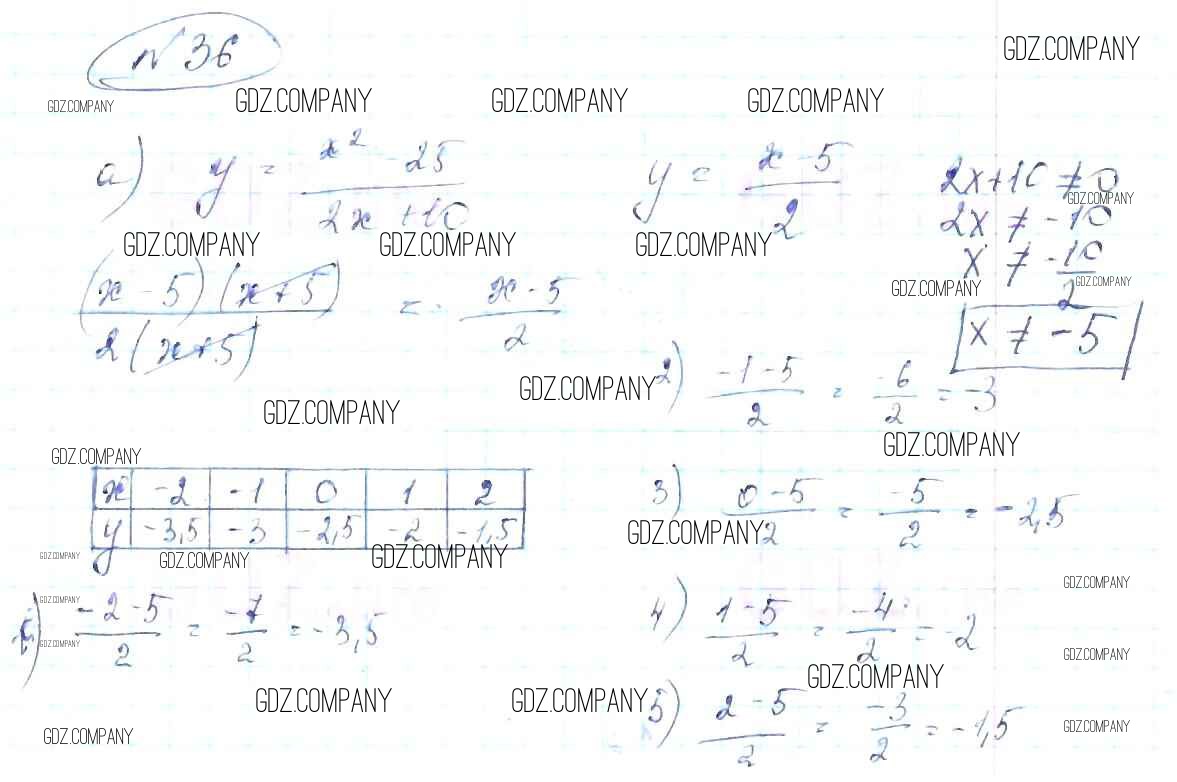 N 36
GDZ.COMPANY
GDZ.COMPANY GDZ.COMPANY GDZ.COMPANY GDZ.COMPANY
а) y = (x² - 25)/(2x + 10) y = (x - 5)/2 2x + 10 ≠ 0
GDZ.COMPANY
2x ≠ -10
GDZ.COMPANY GDZ.COMPANY GDZ.COMPANY
x ≠ -10/2
((x - 5)(x + 5))/(2(x + 5)) = (x - 5)/2
GDZ.COMPANY GDZ.COMPANY
x ≠ -5
2) (-1 - 5)/2 = -6/2 = -3
GDZ.COMPANY
GDZ.COMPANY
GDZ.COMPANY GDZ.COMPANY
x -2 -1 0 1 2
y -3,5 -3 -2,5 -2 -1,5
3) (0 - 5)/2 = -5/2 = -2,5
GDZ.COMPANY
GDZ.COMPANY GDZ.COMPANY GDZ.COMPANY
GDZ.COMPANY
GDZ.COMPANY
(-2 - 5)/2 = -7/2 = -3,5
GDZ.COMPANY
4) (1 - 5)/2 = -4/2 = -2
GDZ.COMPANY
GDZ.COMPANY
GDZ.COMPANY GDZ.COMPANY
5) (2 - 5)/2 = -3/2 = -1,5
GDZ.COMPANY GDZ.COMPANY